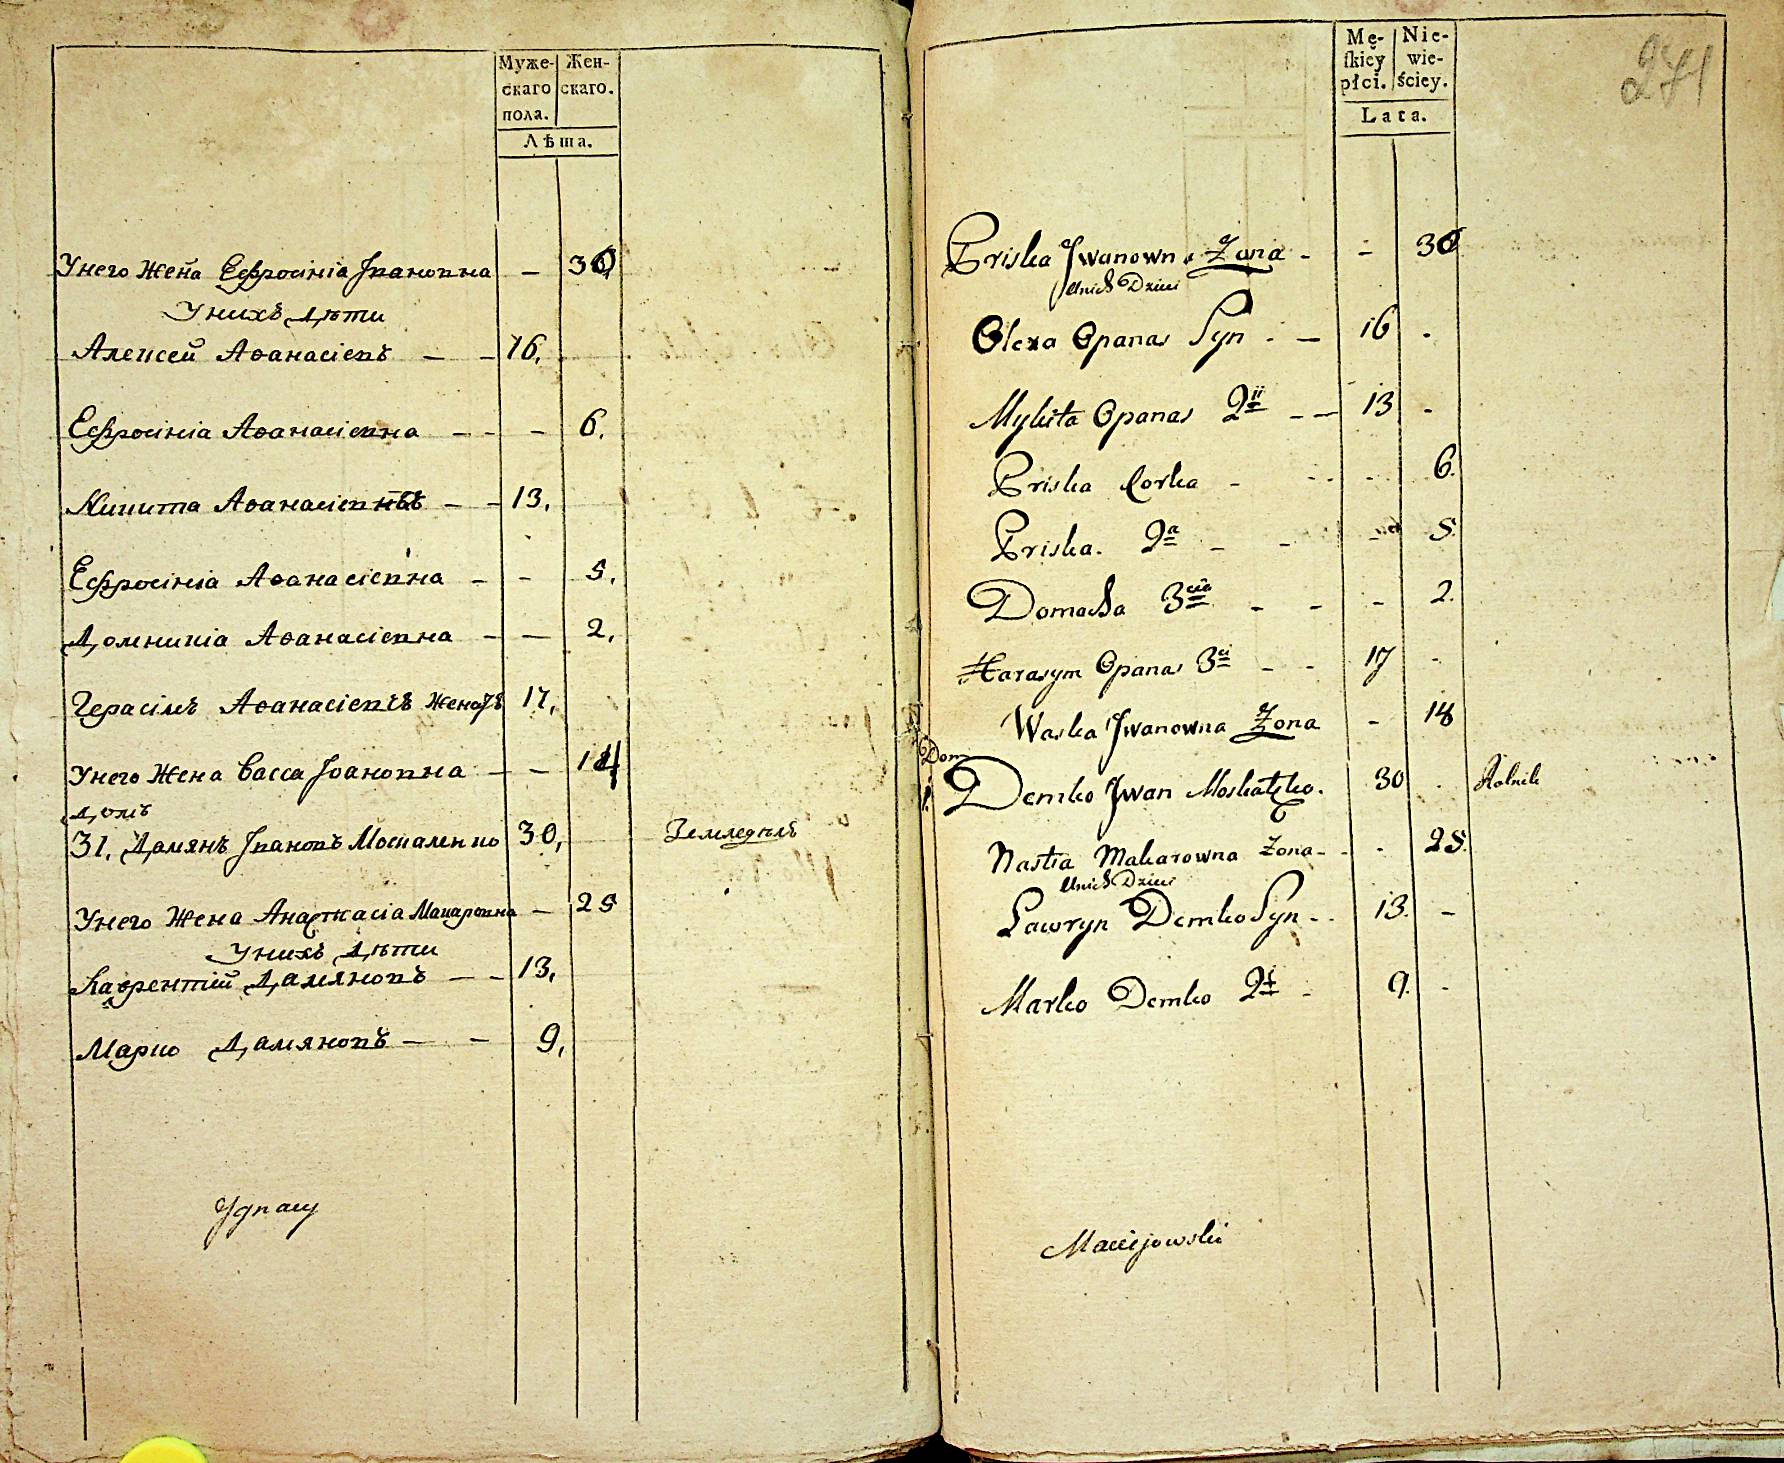 Муже- Жен-
скаго скаго.
пола.
Лѣта.
Унего Жена Евфросініа Івановна — 36
Унихъ Дѣти
Алексей Аѳанасіевъ — — 16.
Евфросініа Аѳанасіевна — — — 6.
Никита Аѳанасіевъ — — 13.
Евфросініа Аѳанасіевна — — 5.
Домникіа Аѳанасіевна — — 2.
Герасімъ Аѳанасіевъ Женатъ 17.
Унего Жена Васса Іоановна — — 14
Домъ
31. Дамянъ Івановъ Москаленко 30. Земледѣлъ
Унего Жена Анастасіа Макаровна — 25
Унихъ Дѣти
Лаврентій Дамяновъ — — 13.
Марко Дамяновъ — — 9.
Ignacy
Mę- Nie-
skiey wie-
płci. ściey.
Lata.
271
Priska Jwanowna Żona - - 36
Unich Dzieci
Olexa Opanas Syn - — 16 -
Mykita Opanas 2ii — — 13 -
Priska Corka - - - - 6.
Priska. 2a - - - 5.
Domacha 3cia - - - 2.
Harasym Opanas 3ci - - 17 -
Waska Jwanowna Żona - 14
Dom
Demko Jwan 30 . Rolnik
Nastia Makarowna Żona - - - 25.
Unich Dzieci
Lawryn Demko Syn - - 13. -
Marko Demko 2i - 9. -
Maciejowski